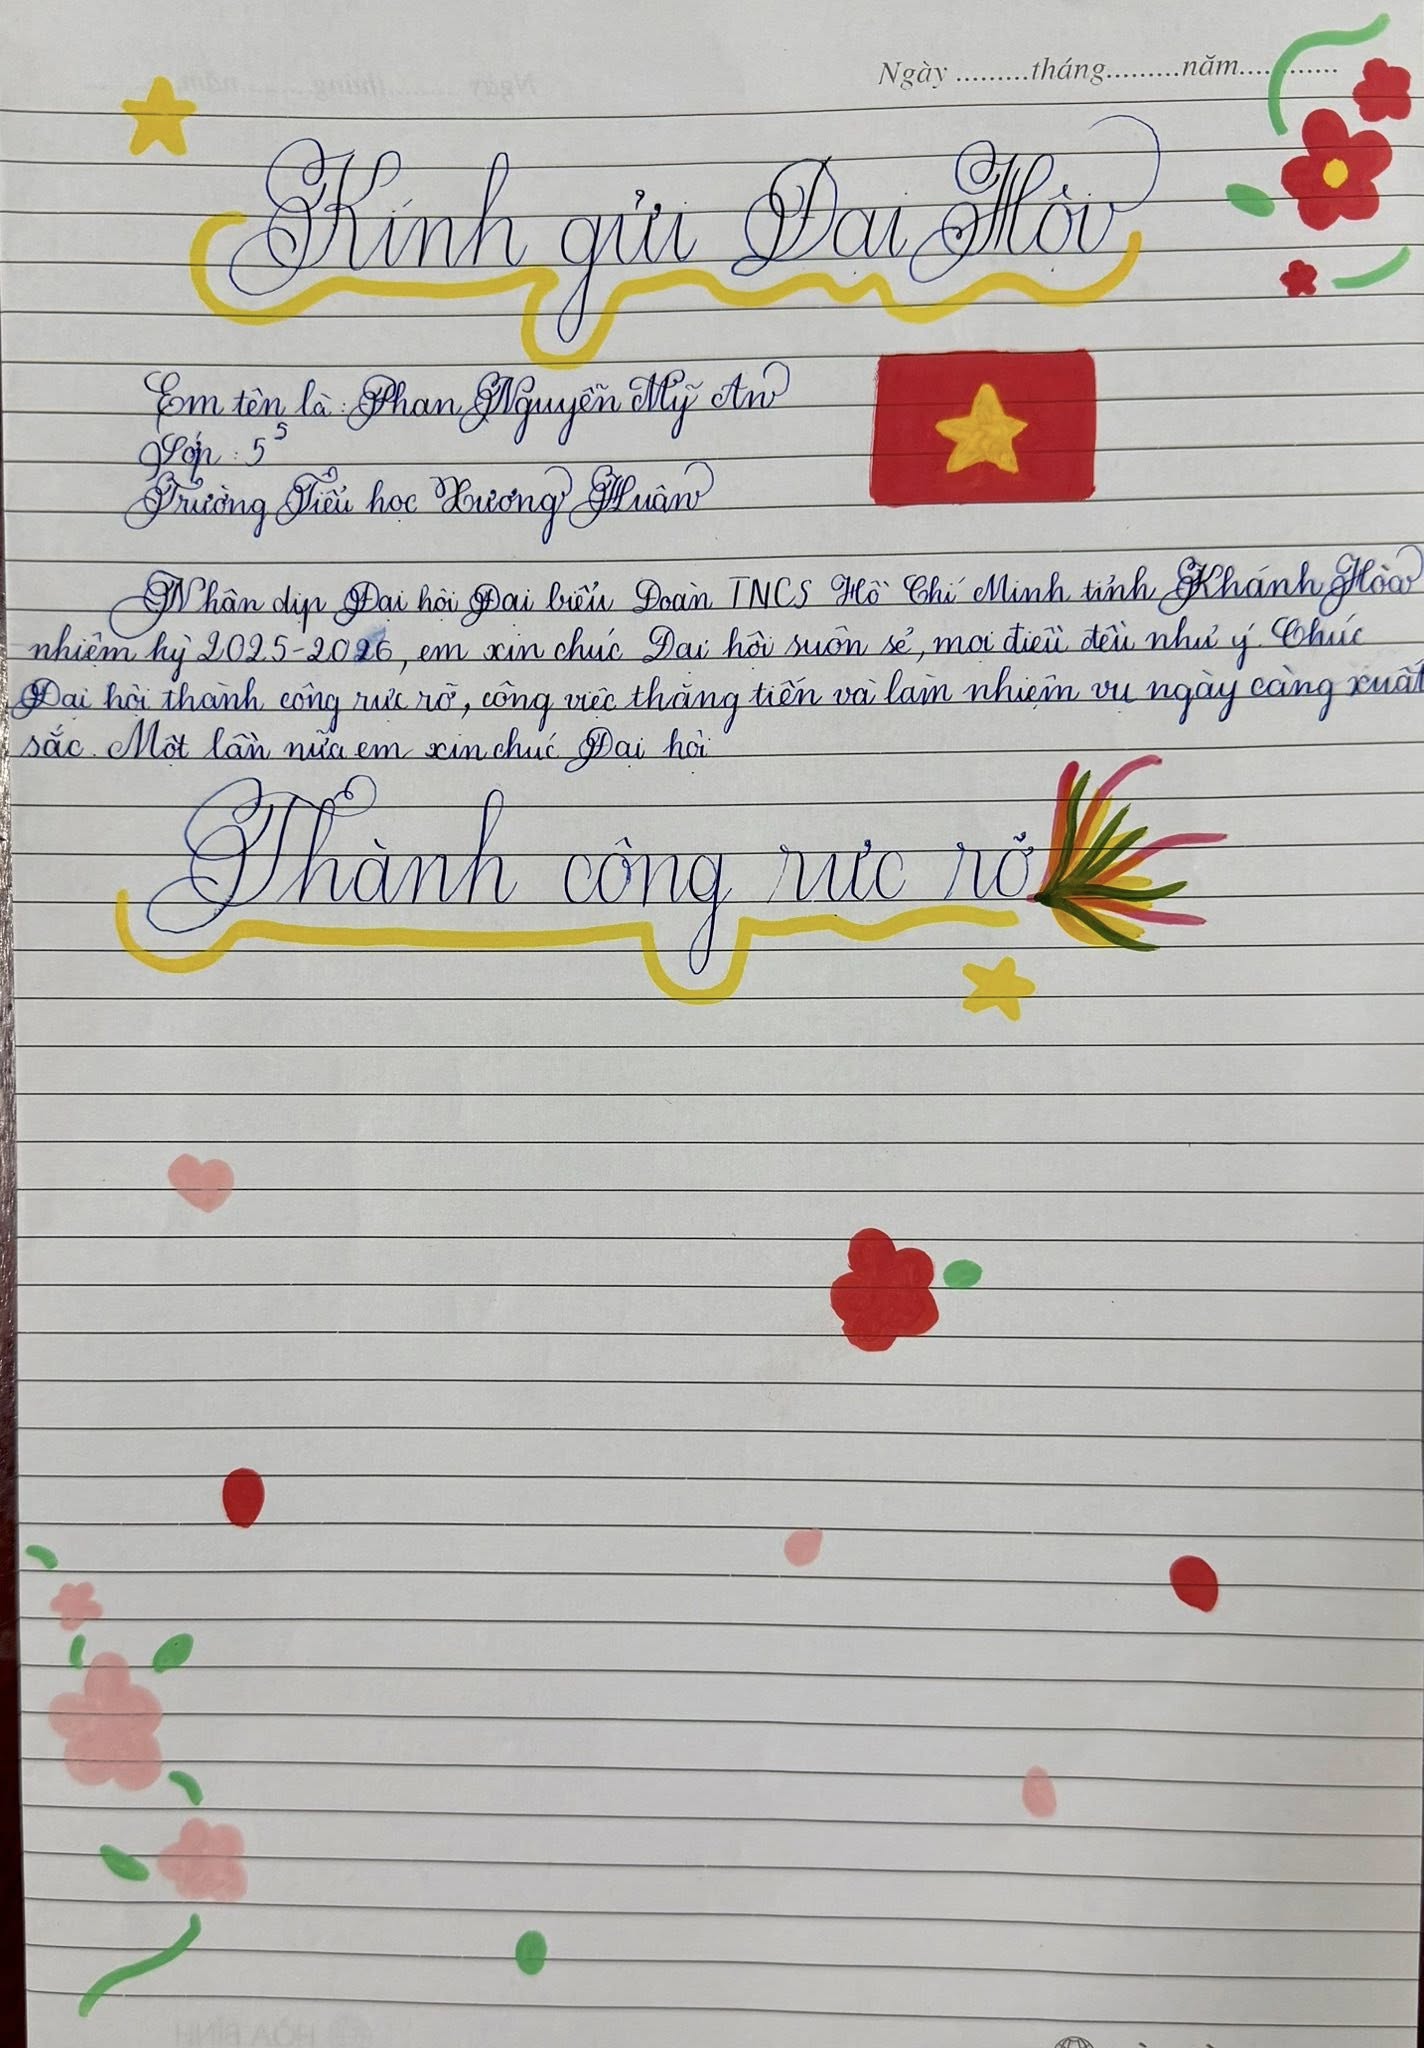 Ngày .........tháng.........năm............
Kính gửi Đại Hội
Em tên là : Phan Nguyễn Mỹ An
Lớp : 5⁵
Trường Tiểu học Xương Huân
Nhân dịp Đại hội Đại biểu Đoàn TNCS Hồ Chí Minh tỉnh Khánh Hòa
nhiệm kỳ 2025-2026, em xin chúc Đại hội suôn sẻ, mọi điều đều như ý. Chúc
Đại hội thành công rực rỡ, công việc thăng tiến và làm nhiệm vụ ngày càng xuất
sắc. Một lần nữa em xin chúc Đại hội
Thành công rực rỡ